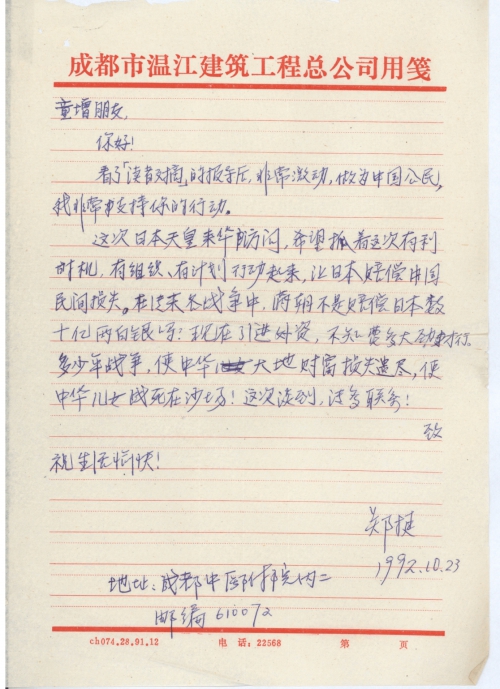 成都市温江建筑工程总公司用笺
童增朋友,
你好!
看了「读者文摘」的报导后,非常激动,做为中国公民,
我非常支持你的行动。
这次日本天皇来华访问,希望抓着这次有利
时机,有组织、有计划行动起来,让日本赔偿中国
民间损失。在过来长战争中,清朝不是赔偿日本数
十亿两白银吗?现在引进外资,不知要多大劲
多少年战争,使中华大地财富损失遗尽,使
中华儿女战死在沙场!这次谈到,请多联系!
致
祝生活愉快!
郑捷
1992.10.23
地址:成都中医附院内二
邮编610072
cb074.28.91.12 电话:22568 第 页